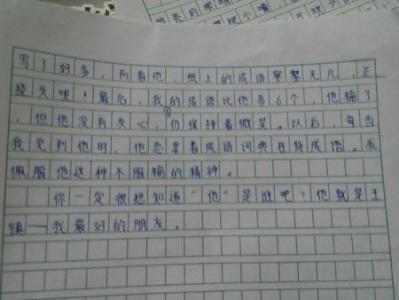 写了好多，而看他，纸上的成语寥寥无几，正
接失呢！最后，我的成语比他多6个，他输了
，但他没有灰心，仍保持着微笑。以后，每当
我见到他时，他总拿着成语词典在背成语。我
佩服他这种不服输的精神。
你一定很想知道“他”是谁吧？他就是王
镇——我最好的朋友。